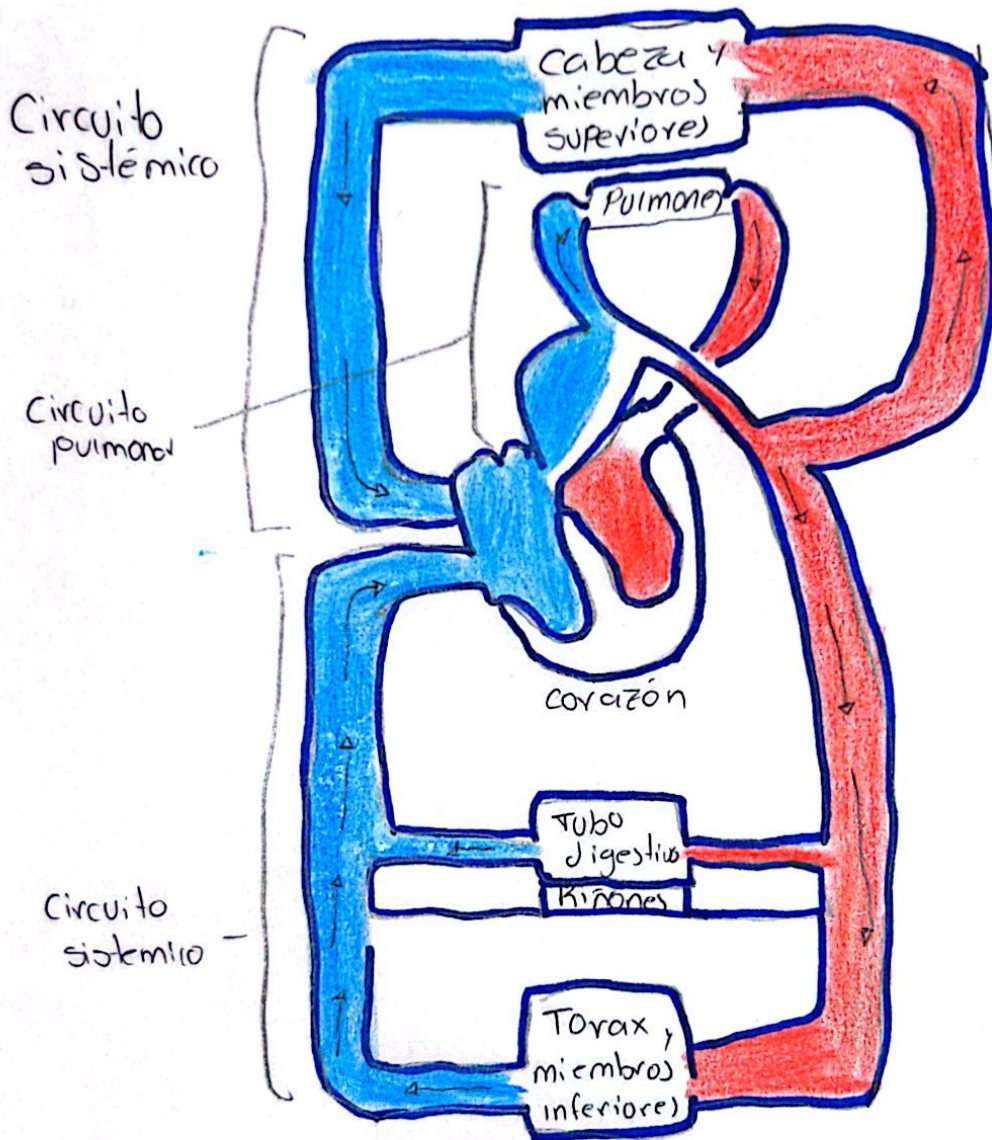 Circuito
sistémico
Cabeza y
miembros
superiores
Pulmones
Circuito
pulmonar
corazón
Tubo
digestivo
Riñones
Circuito
sistemico
Torax y
miembros
inferiores